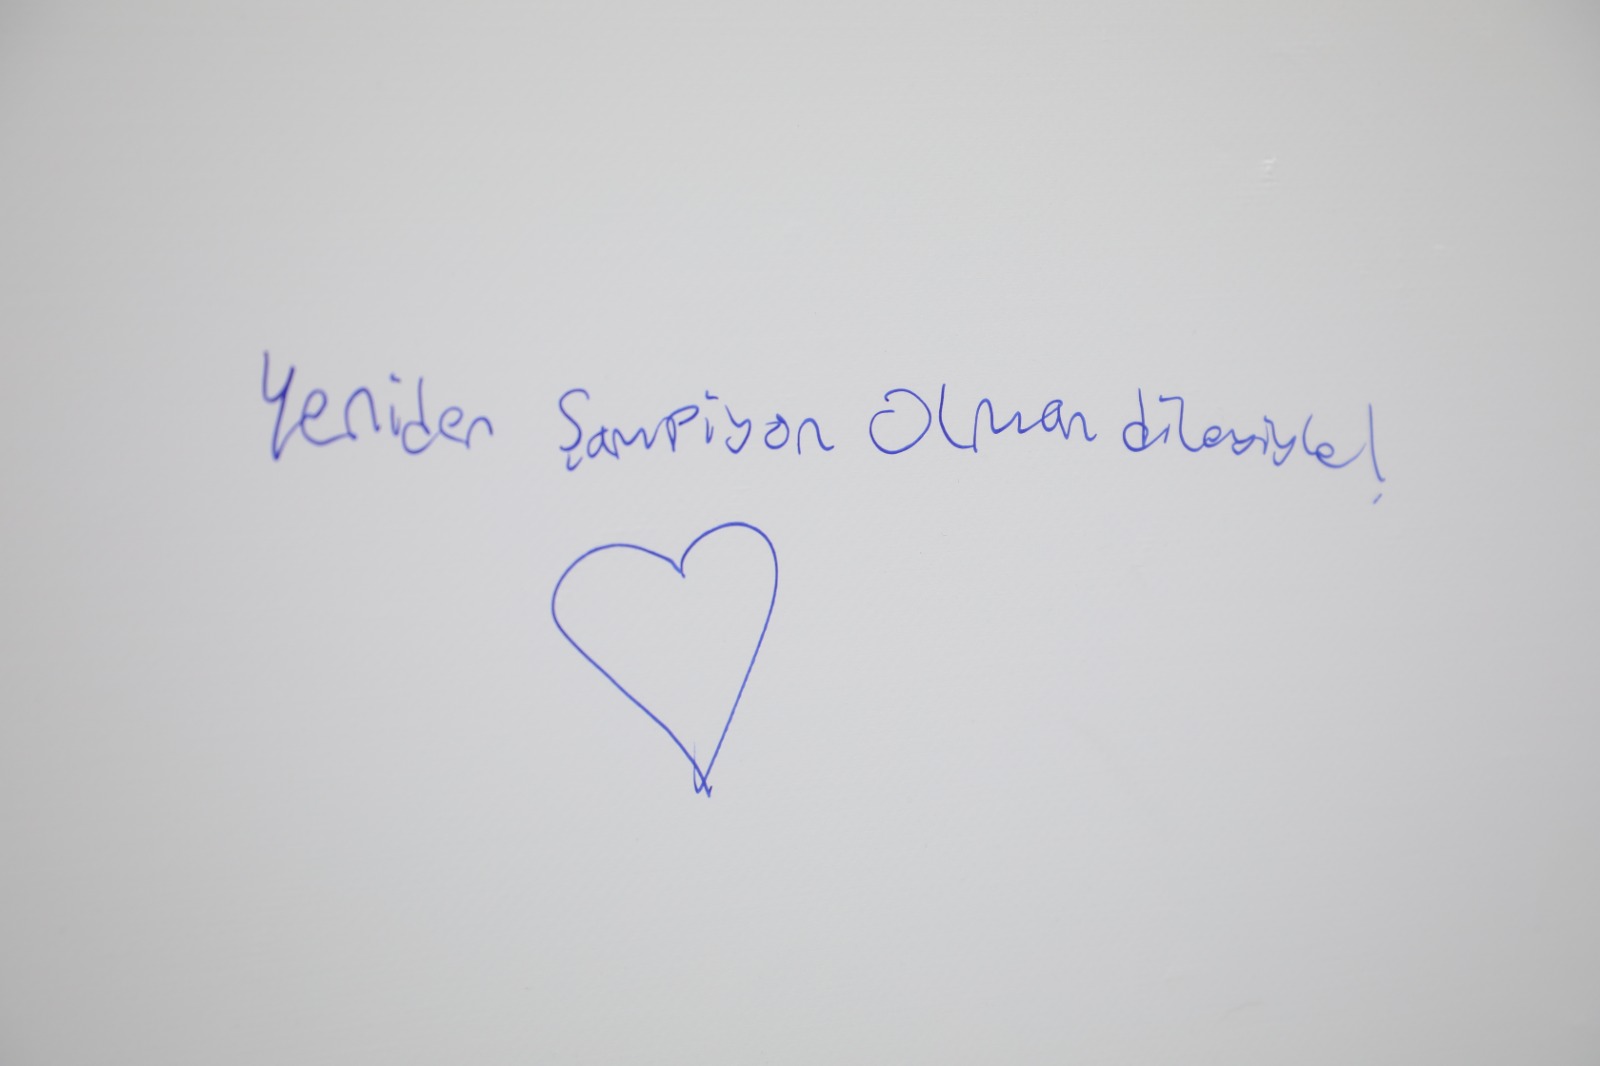 Yeniden Şampiyon Olman dileğiyle!